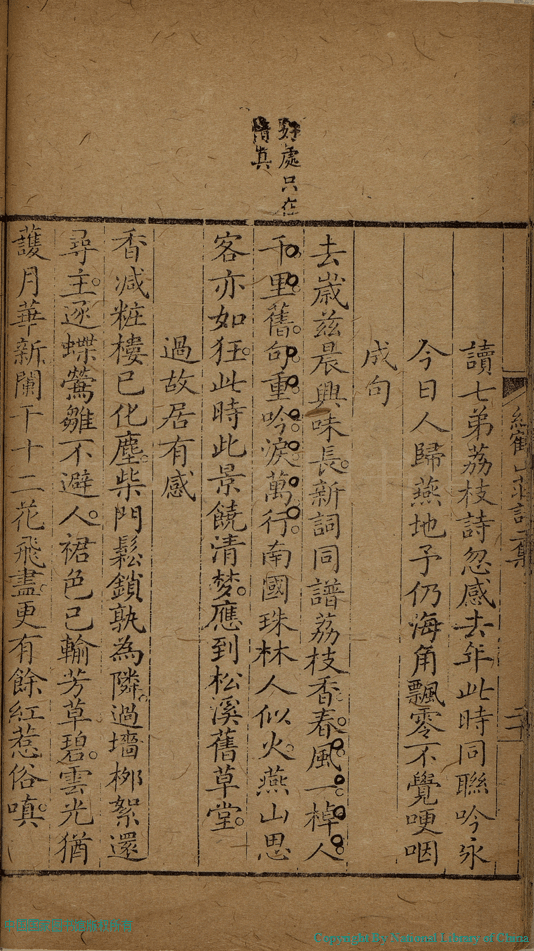 好處只在
清真
讀七弟荔枝詩忽感去年此時同聯吟永
今日人歸燕地予仍海角飄零不覺哽咽
成句
去歲茲晨興味長新詞同譜荔枝香春風一棹人
千里舊句重吟淚萬行南國珠林人似火燕山思
客亦如狂此時此景饒清夢應到松溪舊草堂
過故居有感
香減粧樓已化塵柴門鬆鎖孰為隣過墻柳絮還
尋主逐蝶鶯雛不避人裙色已輸芳草碧雲光猶
護月華新闌干十二花飛盡更有餘紅惹俗嗔
Copyright By National Library of China